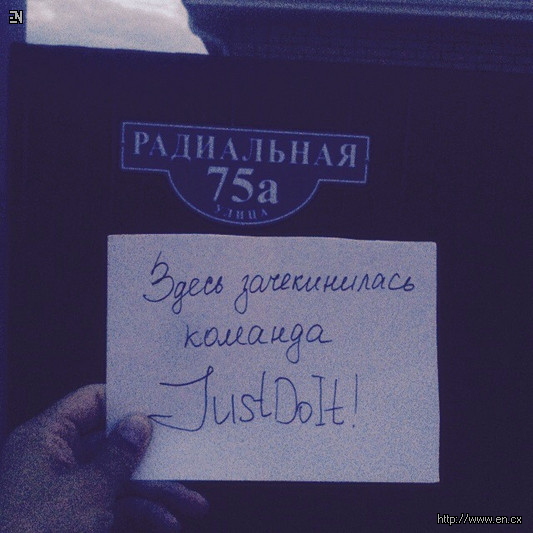 EN
РАДИАЛЬНАЯ
75а
УЛИЦА
Здесь зачекинилась
команда
JustDoIt!
http://www.en.cx